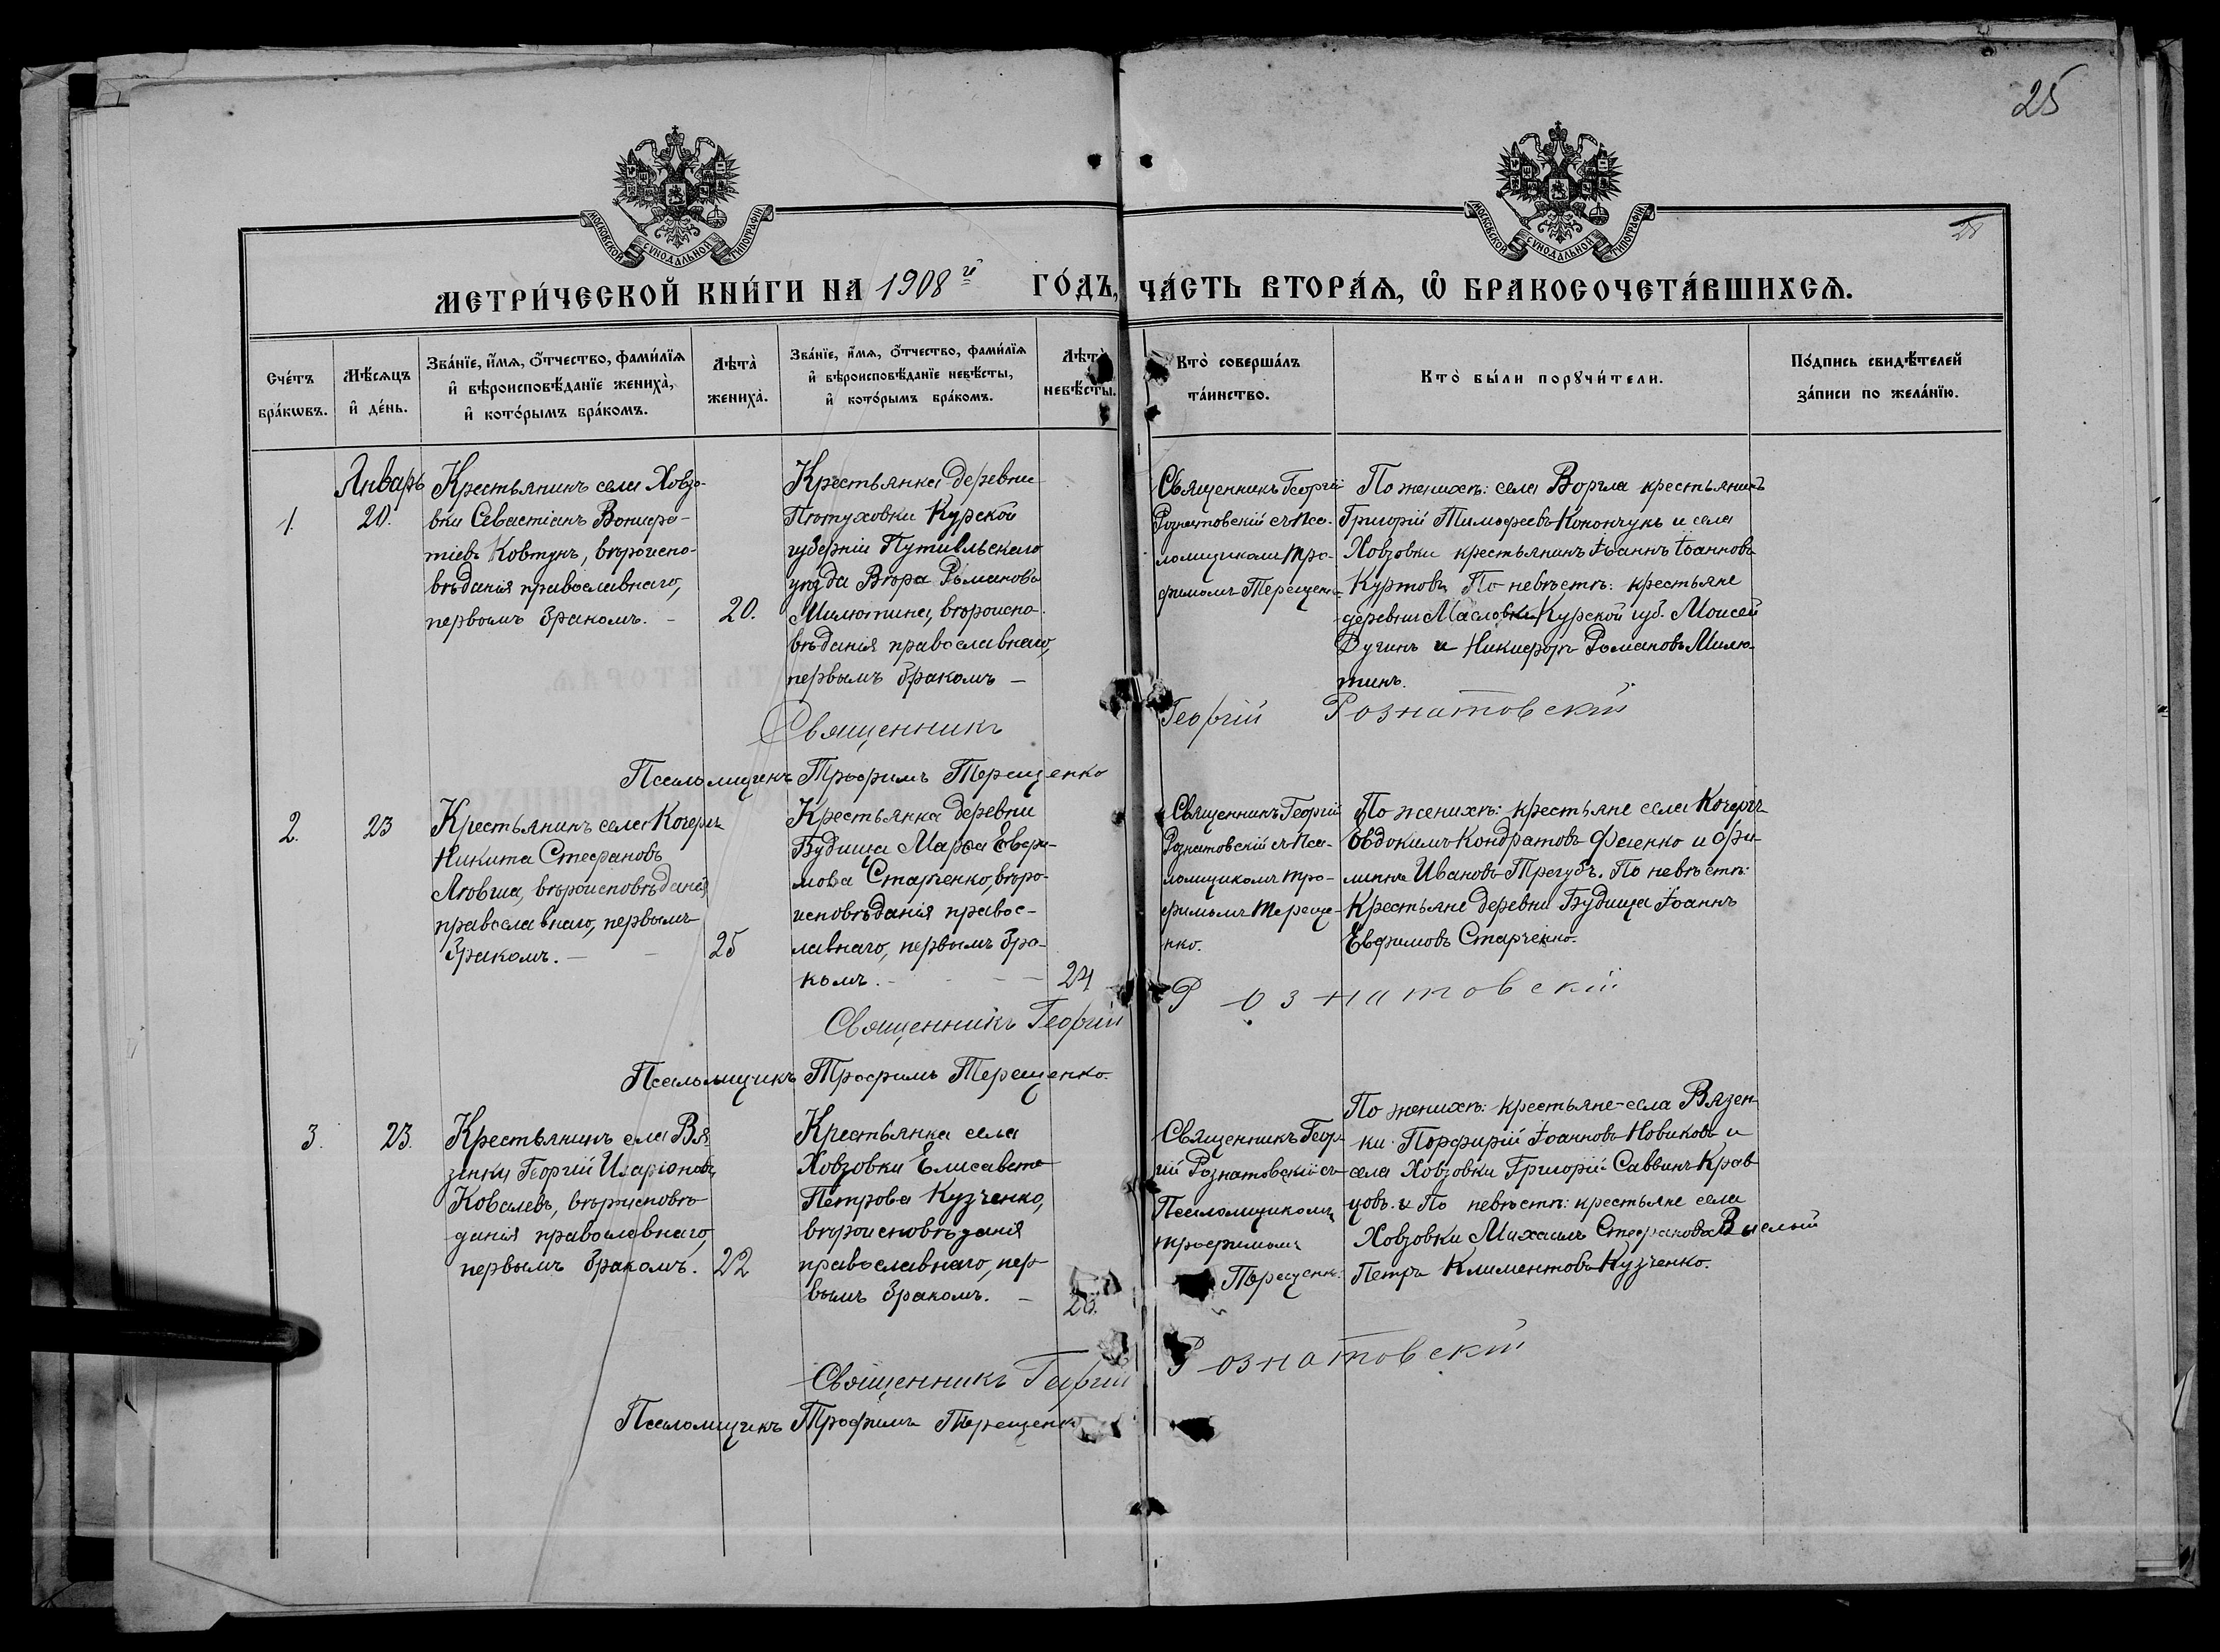 25
МОСКОВСКОЙ СѴНОДАЛЬНОЙ ТИПОГРАФІИ
МОСКОВСКОЙ СѴНОДАЛЬНОЙ ТИПОГРАФІИ
МЕТРИ́ЧЕСКОЙ КНИ́ГИ НА 1908й ГО́ДЪ, ЧА́СТЬ ВТОРА́Ѧ, Ѡ҆ БРАКОСОЧЕТА́ВШИХСѦ.
Сче́тъ
бра́кѡвъ.
Мѣ́сѧцъ
и҆ де́нь.
Зва́нїе, и҆́мѧ, о҆́тчество, фами́лїѧ
и҆ вѣроисповѣ́данїе женихà,
и҆ кото́рымъ бра́комъ.
Лѣ̀та
женихà.
Зва́нїе, и҆́мѧ, о҆́тчество, фами́лїѧ
и҆ вѣроисповѣ́данїе невѣ́сты,
и҆ кото́рымъ бра́комъ.
Лѣ̀та
невѣ́сты.
Кто̀ соверша́лъ
та́инство.
Кто̀ бы́ли порꙋчи́тели.
По́дпись свидѣ́телей
за́писи по жела́нїю.
1.
Январь
20.
Крестьянинъ села Ховзо-
вки Севастіанъ Вонифа-
тіевъ Ковтунъ, вѣроиспо-
вѣданія православнаго,
первымъ бракомъ. –
20.
Крестьянка деревни
Пютуховки Курской
губерніи Путивльскаго
уѣзда Вѣра Романова
Милютина, вѣроиспо-
вѣданія православнаго,
первымъ бракомъ –
Священникъ Георгій
Рознатовскій съ Пса-
ломщикомъ Тро-
фимомъ Терещенк-
По женихѣ: села Воргла крестьянинъ
Григорій Тимофеевъ Конончукъ и села
Ховзовки крестьянинъ Іоаннъ Іоанновъ
Куртовъ По невѣстѣ: крестьяне
деревни Масловки Курской губ. Моисей
Дугинъ и Никифоръ Романовъ Милю-
тинъ.
Священникъ Георгій Рознатовскій
Псаломщикъ Трофимъ Терещенко
2.
23
Крестьянинъ села Кочергъ
Никита Стефановъ
Ловша, вѣроисповѣданія
православнаго, первымъ
бракомъ. –
25
Крестьянка деревни
Будища Марфа Евфи-
мова Старченко, вѣро-
исповѣданія правос-
лавнаго, первымъ бра-
комъ. –
24
Священникъ Георгій
Рознатовскій съ Пса-
ломщикомъ Тро-
фимомъ Тереще-
нко.
По женихѣ: крестьяне села Кочергъ
Евдокимъ Кондратовъ Фесенко и Фи-
липпъ Ивановъ Трегубъ. По невѣстѣ:
Крестьяне деревни Будища Іоаннъ
Евфимовъ Старченко.
Священникъ Георгій Рознатовскій
Псаломщикъ Трофимъ Терещенко.
3.
23.
Крестьянинъ села Вя
зенки Георгій Иларіоновъ
Ковалевъ, вѣроисповѣ-
данія православнаго,
первымъ бракомъ.
22
Крестьянка села
Ховзовки Елисавета
Петрова Кузченко,
вѣроисповѣданія
православнаго, пер-
вымъ бракомъ. –
Священникъ Геор-
гій Рознатовскій съ
Псаломщикомъ
Трофимомъ
Терещенк.
По женихѣ: крестьяне села Вязен-
ки Порфирій Іоанновъ Новиковъ и
села Ховзовки Григорій Саввинъ Крав-
цовъ. и По невѣстѣ: крестьяне села
Ховзовки Михаилъ Стефановъ
Петръ Климентовъ Кузченко.
Священникъ Георгій Рознатовскій
Псаломщикъ Трофимъ Терещенко